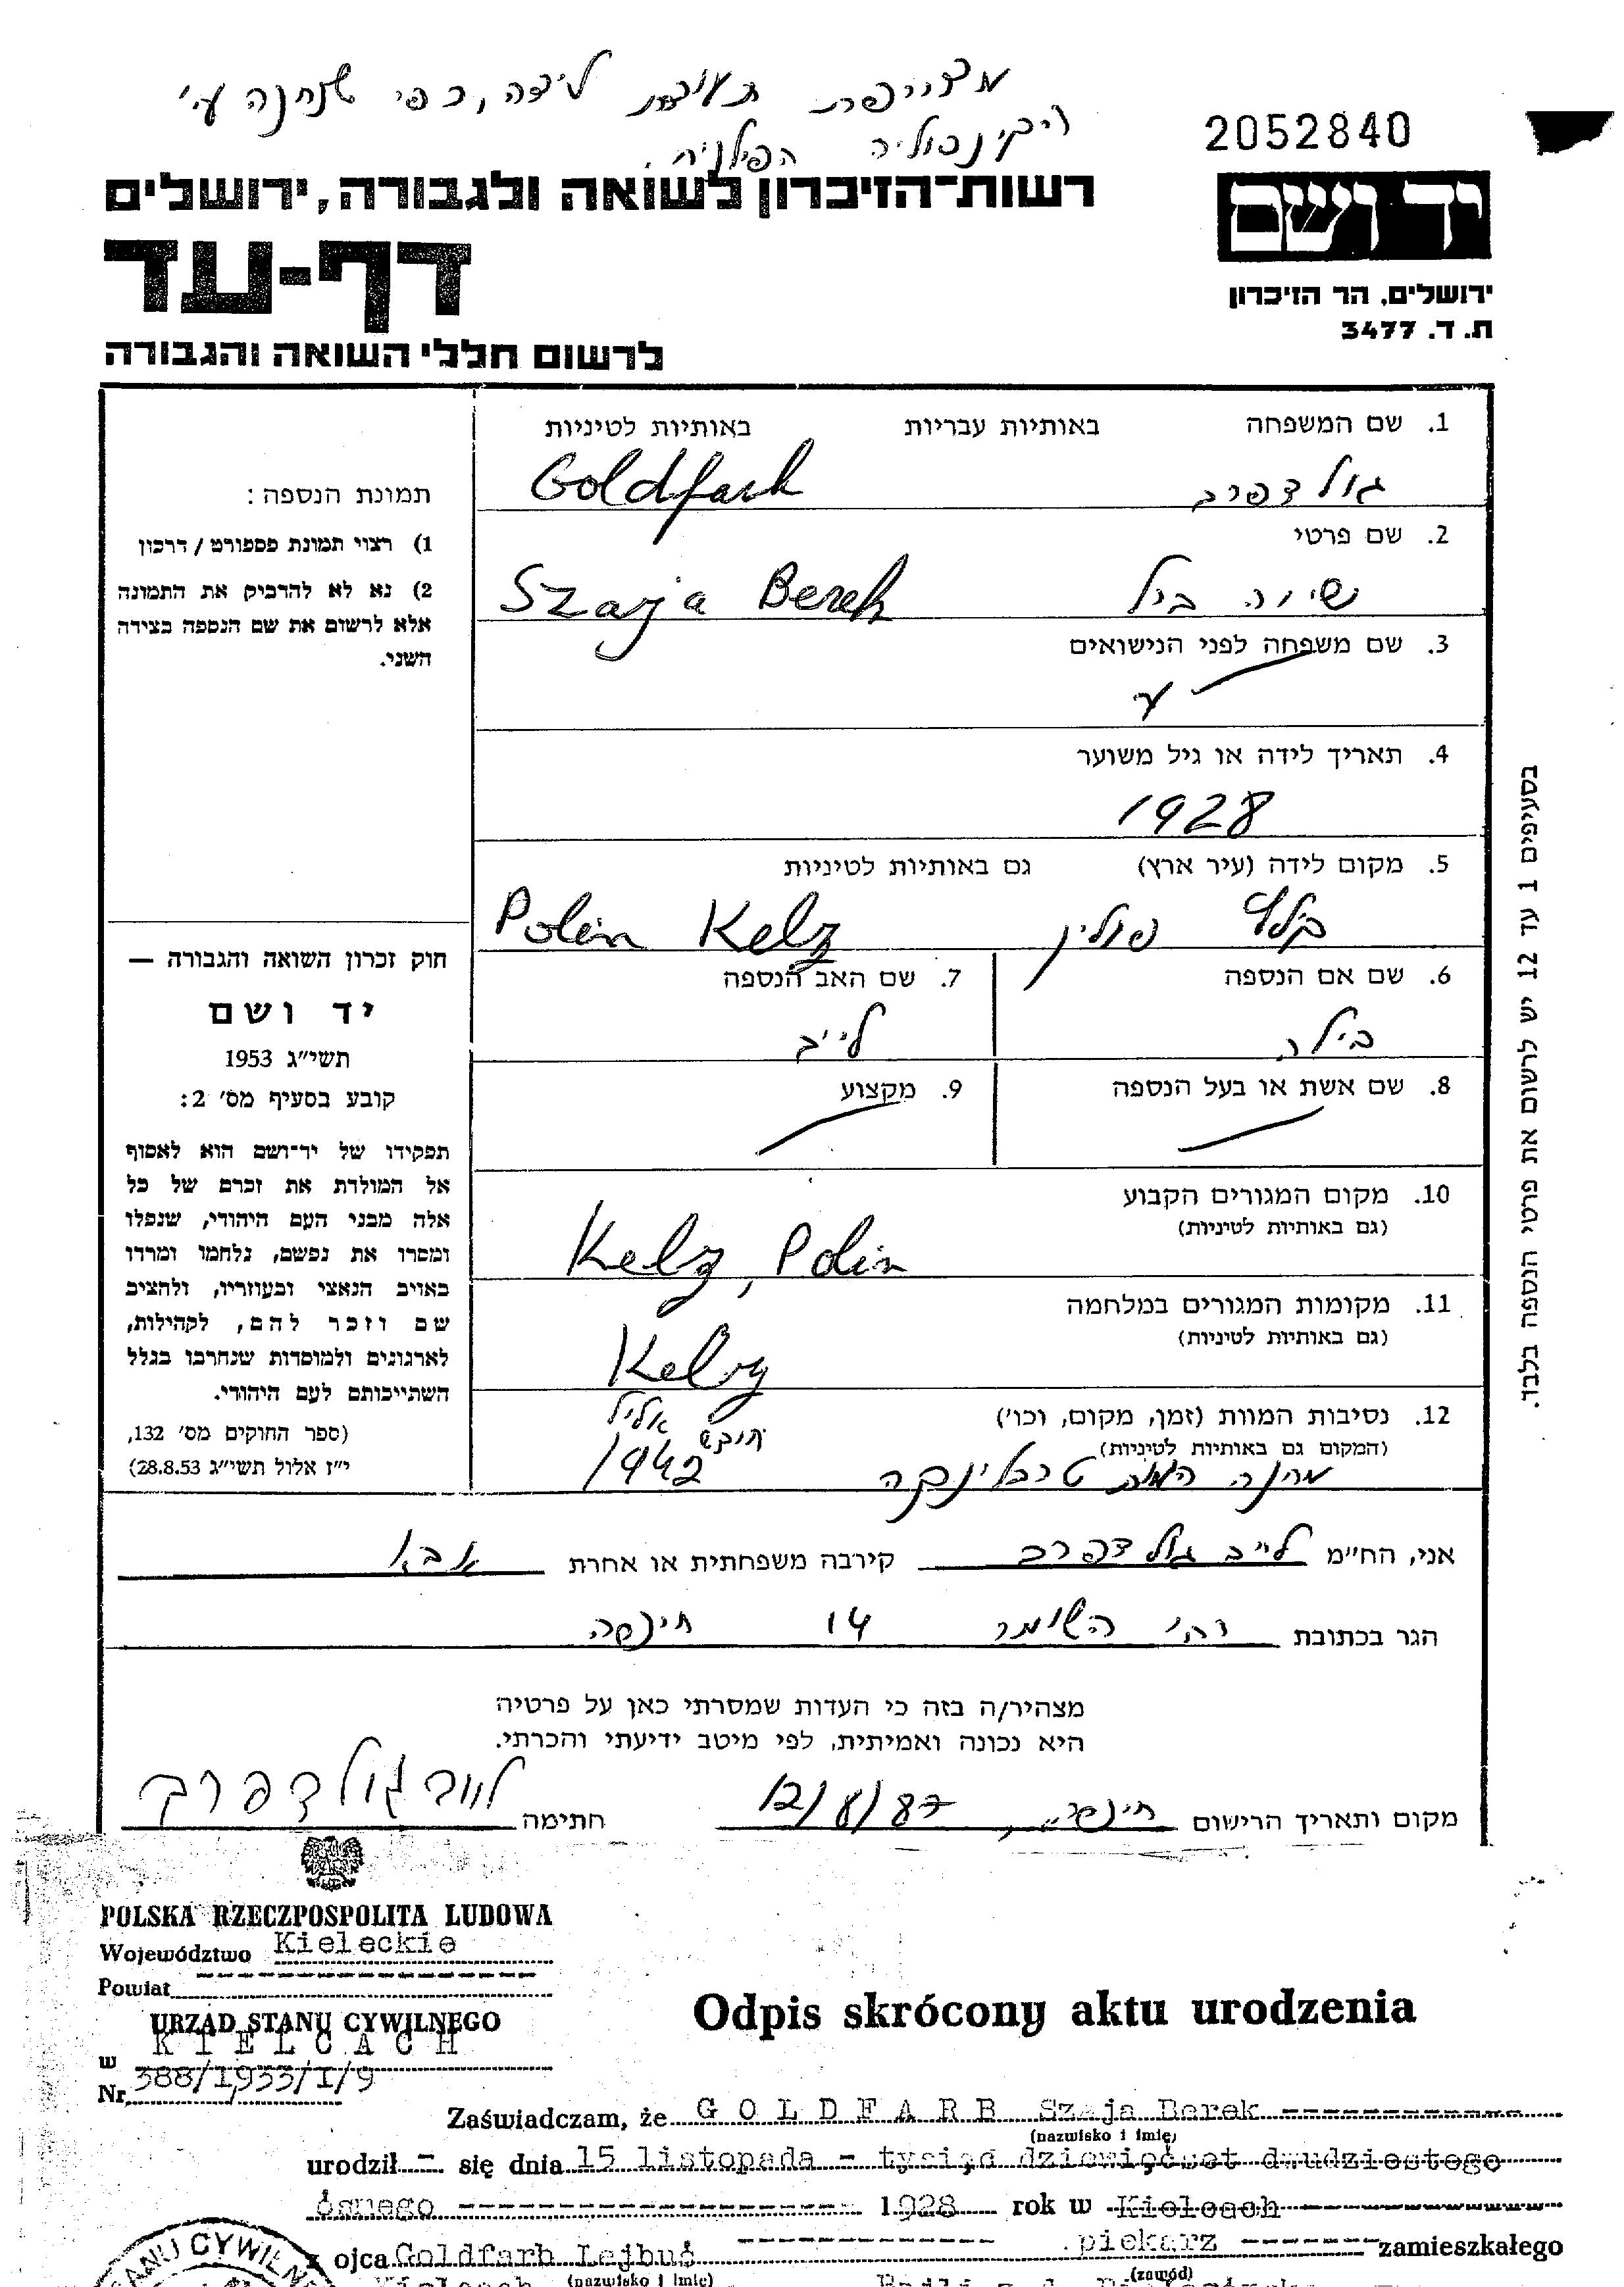 מצורפת תעודת לידה, כפי שנתנה ע"י
2052840
רשות־הזיכרון לשואה ולגבורה, ירושלים
יד ושם
דף-עד
ירושלים, הר הזיכרון
ת. ד. 3477
לרשום חללי השואה והגבורה
1. שם המשפחה באותיות עבריות באותיות לטיניות
גולדפרב Goldfarb
תמונת הנספה :
2. שם פרטי
1) רצוי תמונת פספורט / דרכון
Szaja Berek
2) נא לא להדביק את התמונה
אלא לרשום את שם הנספה בצידה
השני.
3. שם משפחה לפני הנישואים
4. תאריך לידה או גיל משוער
1928
5. מקום לידה (עיר ארץ) גם באותיות לטיניות
קילץ פולין Polin Kelz
חוק זכרון השואה והגבורה —
יד ושם
תשי״ג 1953
קובע בסעיף מס׳ 2:
6. שם אם הנספה 7. שם האב הנספה
בילה לייב
8. שם אשת או בעל הנספה 9. מקצוע
תפקידו של יד־ושם הוא לאסוף
אל המולדת את זכרם של כל
אלה מבני העם היהודי, שנפלו
ומסרו את נפשם, נלחמו ומרדו
באויב הנאצי ובעוזריו, ולהציב
שם וזכר להם, לקהילות,
לארגונים ולמוסדות שנחרבו בגלל
השתייכותם לעם היהודי.
(ספר החוקים מס׳ 132,
י״ז אלול תשי״ג 28.8.53)
10. מקום המגורים הקבוע
(גם באותיות לטיניות)
Kelz, Polin
11. מקומות המגורים במלחמה
(גם באותיות לטיניות)
Kelz
12. נסיבות המוות (זמן, מקום, וכו׳)
(המקום גם באותיות לטיניות)
מחנה המות טרבלינקה חודש אפריל 1942
בסעיפים 1 עד 12 יש לרשום את פרטי הנספה בלבד.
אני, הח״מ לייב גולדפרב קירבה משפחתית או אחרת אבא
הגר בכתובת רח' השומר 14 חיפה
מצהיר/ה בזה כי העדות שמסרתי כאן על פרטיה
היא נכונה ואמיתית, לפי מיטב ידיעתי והכרתי.
מקום ותאריך הרישום חיפה, 12/8/87 חתימה לייב גולדפרב
POLSKA RZECZPOSPOLITA LUDOWA
Województwo Kieleckie
Powiat
URZĄD STANU CYWILNEGO
w KIELCACH
Nr 388/1933/I/9
Odpis skrócony aktu urodzenia
Zaświadczam, że GOLDFARB Szaja Berek
(nazwisko i imię)
urodził - się dnia 15 listopada - tysiąc dziewięćset dwudziestego
ósmego 1928 rok w Kielcach
z ojca Goldfarb Lejbuś piekarz zamieszkałego
(nazwisko i imię) (zawód)